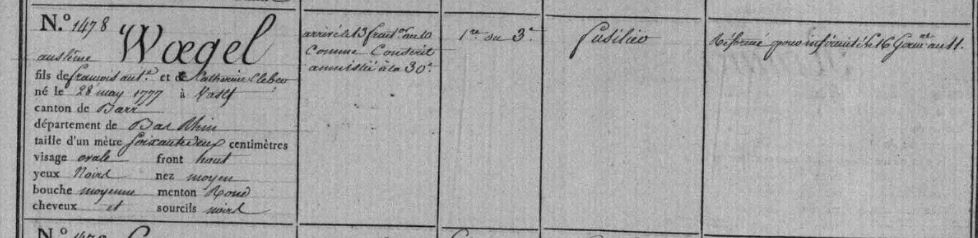 N.º 1478
Wœgel
austème
fils de françois ant.e et de Catherine Cleber
né le 28 may 1777 à Vasef
canton de Barr
département de Bas Rhin
taille d'un mètre soixante deux centimètres
visage ovale front haut
yeux Noirs nez moyen
bouche moyenne menton Rond
cheveux et sourcils noirs
arrivé le 13 fruct.or an 10
comme Conscrit
amnistié à la 30.e
1.re du 3.e
Fusilier
Réformé pour infirmité le 16 Germ.al an 11.
N.º